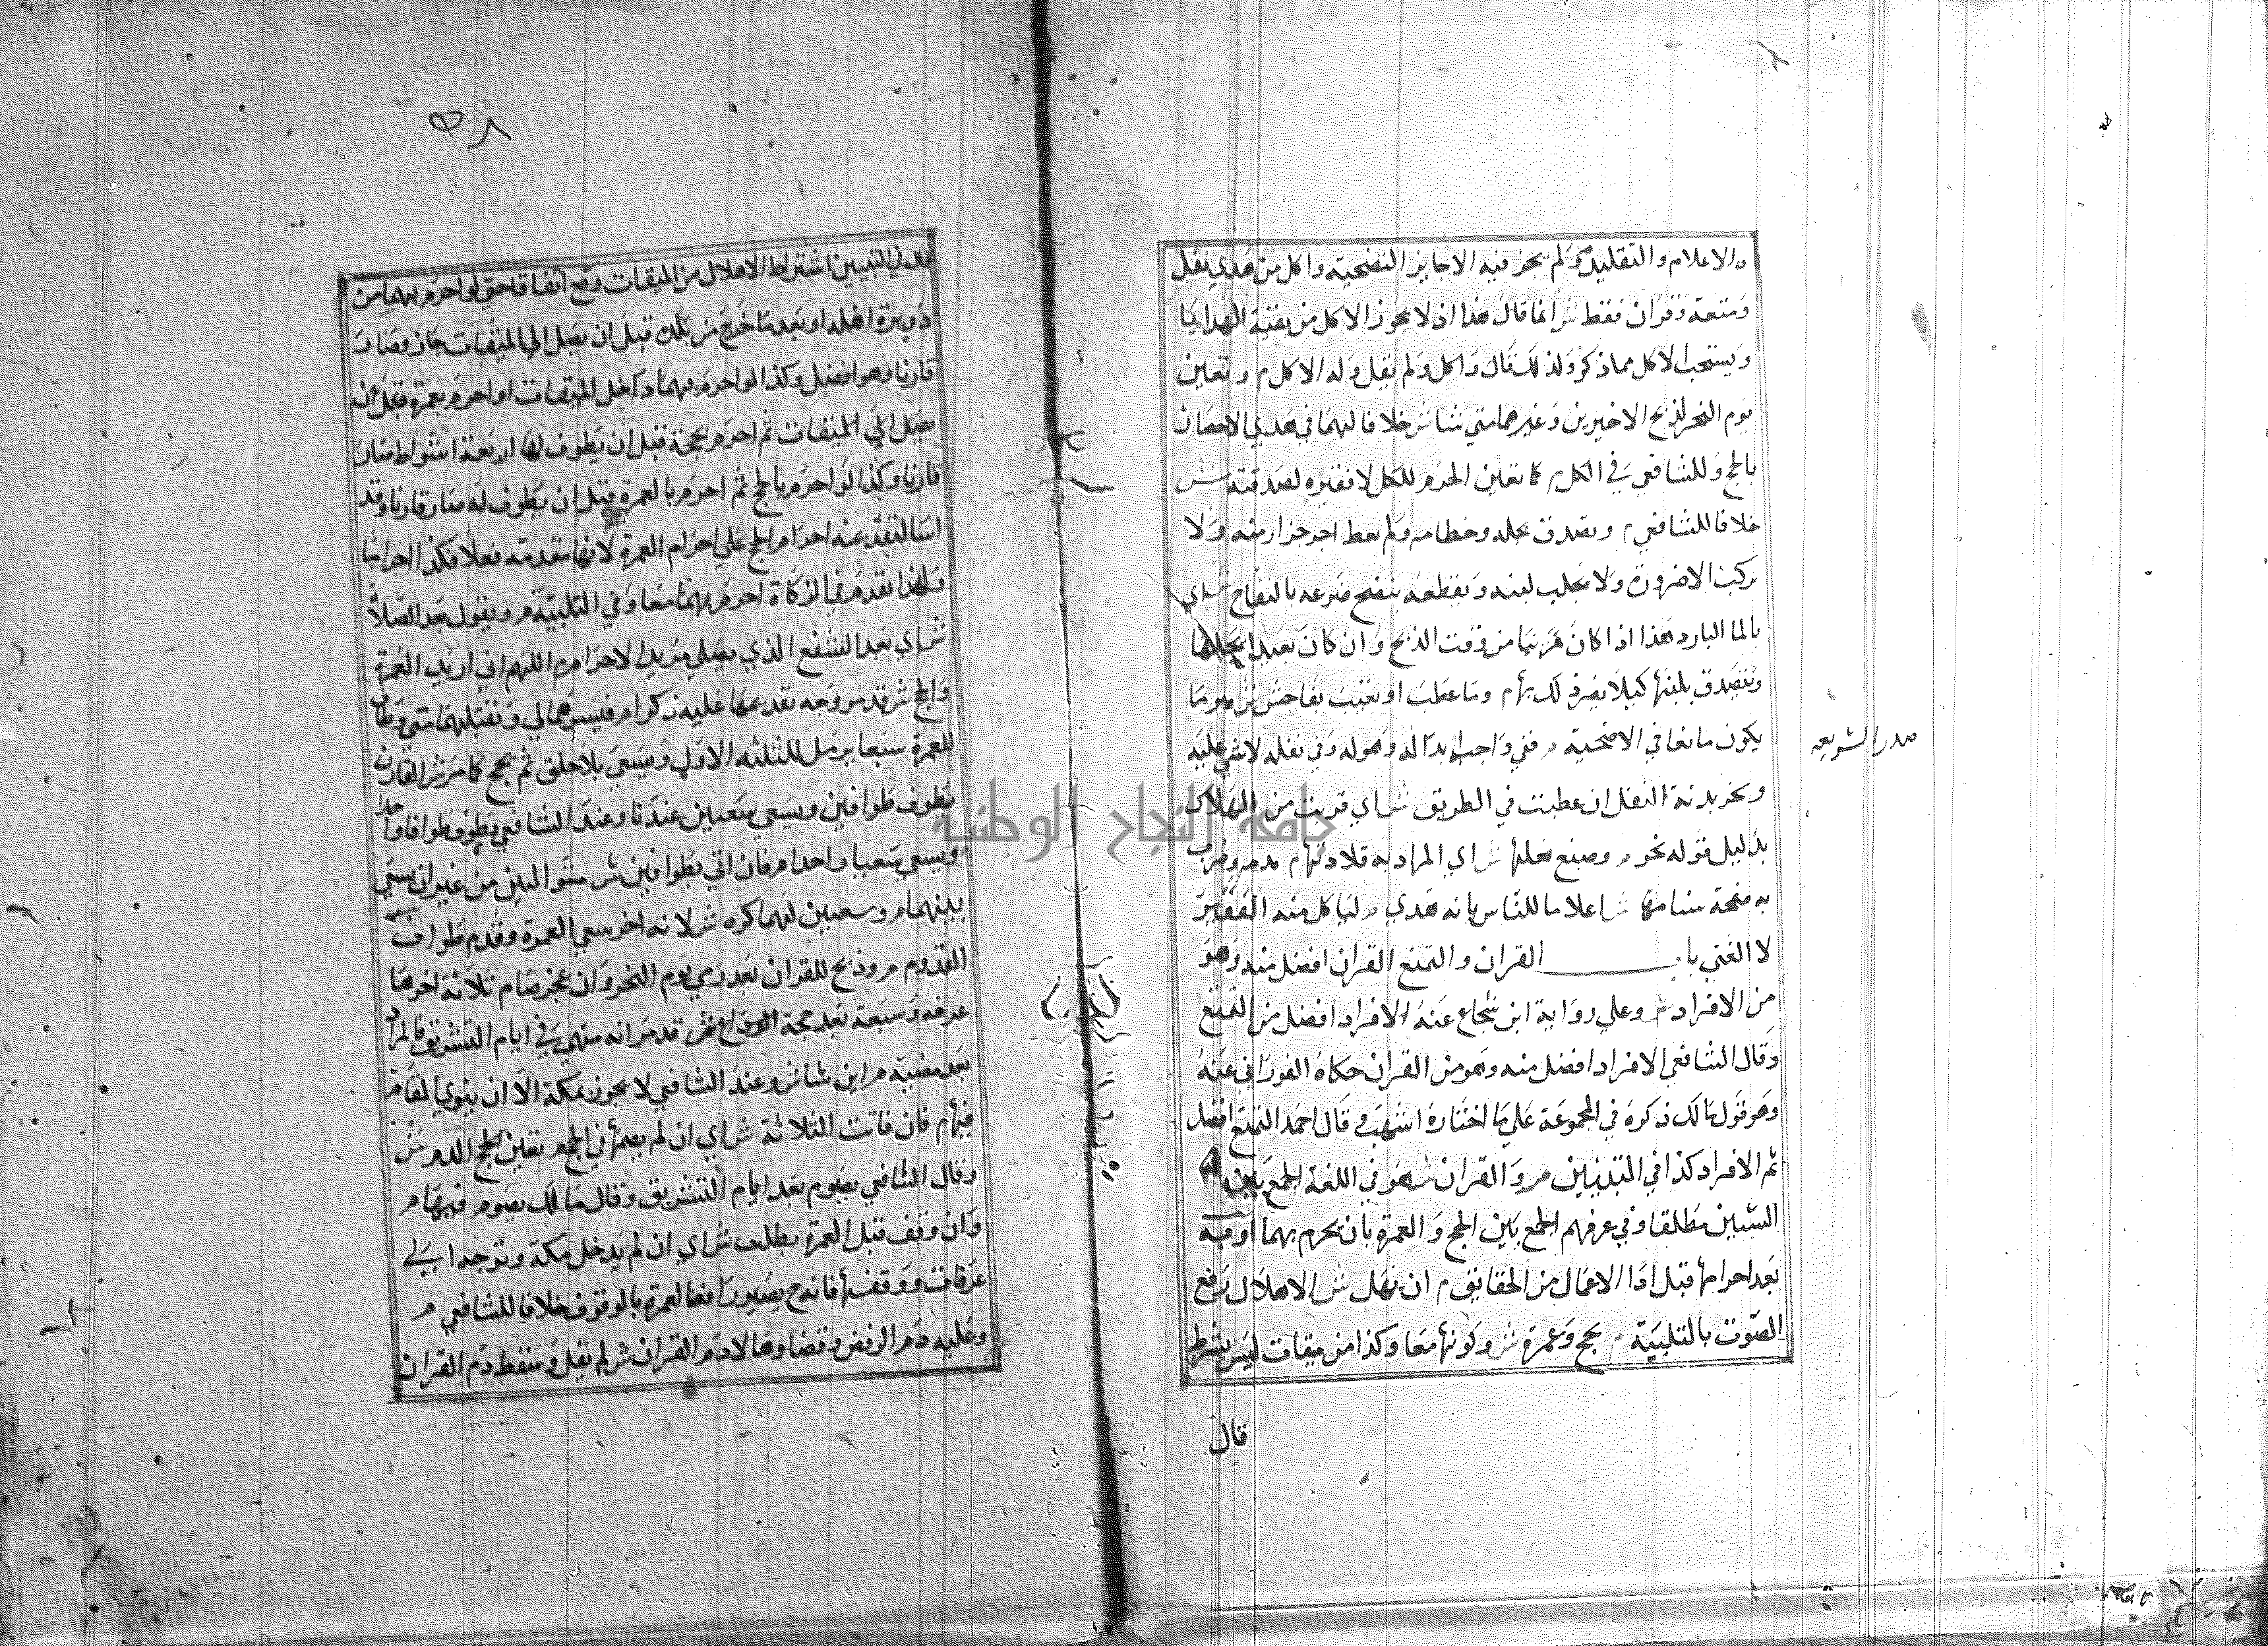 والاعلام والتقليد ولم يجز فيه الا جايز التضحية واكل من هدي نفل
ومتعة وقران فقط ش انما قال هذا اذ لا يجوز الاكل من بقية الهدايا
ويستحب الاكل مما ذكر ولذلك قال واكل ولم يقل وله الاكل م وتعين
يوم النحر لذبح الاخيرين وغيرهما متي شا ش خلافا لهما في هدي الاحصار
بالحج وللشافعي في الكل م كما تعين الحرم للكل لا فقيره لصدقته ش
خلافا للشافعي م وتصدق بجله وخطامه ولم يعط اجر جزار منه ولا
يركب الا ضرورة ولا يحلب لبنه ويقطعه بنضح ضرعه بالنقاخ ش اي
بالما البارد هذا اذا كان قريبا من وقت الذبح وان كان بعيدا يحلبها
ويتصدق بلبنها كيلا يضر ذلك بها م وما عطب او تعيب بفاحش ش هو ما
يكون مانعا في الاضحية م ففي واجب ابداله وهو له وفي نفله لا شي عليه
صدر الشريعه
ونحر بدنة النفل ان عطبت في الطريق ش اي قربت من الهلاك
بدليل قوله نحر م وصبغ نعلها ش اي المراد به قلادتها م بدمه وضرب
به صفحة سنامها ش اعلاما للناس بانه هدي م لياكل منه الفقير
لا الغني باب القران والتمتع القران افضل منه وهو
من الافراد م وعلي رواية ابن شجاع عنه الافراد افضل من التمتع
وقال الشافعي الافراد افضل منه وهو من القران حكاه الفوراني عنه
وهو قول مالك ذكره في المجموعة علي ما اختاره اشهب وقال احمد التمتع افضل
ثم الافراد كذا في التبيين م والقران ش هو في اللغة الجمع بين
الشيين مطلقا وفي عرفهم الجمع بين الحج والعمرة بان يحرم بهما او فيه
بعد احرامها قبل ادا الاعمال من الحقايق م ان يهل ش الاهلال رفع
الصوت بالتلبية م بحج وعمرة ش وكونها معا وكذا من ميقات ليس بشرط
قال
٥٨
قال في التبيين اشتراط الاهلال من الميقات وقع اتفاقا حتي لو احرم بهما من
دويرة اهله او بعد ما خرج من بلده قبل ان يصل الي الميقات جاز وصار
قارنا وهو افضل وكذا لو احرم بهما داخل الميقات او احرم بعمرة قبل ان
يصل الي الميقات ثم احرم بحجة قبل ان يطوف لها اربعة اشواط كان
قارنا وكذا لو احرم بالحج ثم احرم بالعمرة قبل ان يطوف له صار قارنا وقد
اسا لتقدمه احرام الحج علي احرام العمرة لانها مقدمة فعلا فكذا احراما
ولهذا تقدم في الذكر اذا احرم بهما معا وفي التلبية م ويقول بعد الصلاة
ش اي بعد الشفع الذي يصلي مريدا لاحرام م اللهم اني اريد العمرة
والحج ش قد مر وجه تقديمها عليه ذكرا م فيسرهما لي وتقبلهما مني وطاف
للعمرة سبعا يرمل للثلثه الاول ويسعي بلا حلق ثم يحج كما مر ش القارن
يطوف طوافين ويسعي سعيين عندنا وعند الشافعي يطوف طوافا واحدا
ويسعي سعيا واحدا م فان اتي بطوافين ش متواليين من غير ان يسعي
بينهما م وسعيين لهما كره ش لانه اخر سعي العمرة وقدم طواف
القدوم م وذبح للقران بعد رمي يوم النحر وان عجز صام ثلاثة اخرها
عرفه وسبعة بعد حجة ش قد مر انه منهي في ايام التشريق فالمراد
بعد مضيه م اين شا ش وعند الشافعي لا يجوز بمكة الا ان ينوي المقام
فيها م فان فاتت الثلاثة ش اي ان لم يصمها في الحج م تعين الدم ش
وقال الشافعي يصوم بعد ايام التشريق وقال مالك يصوم فيها م
وان وقف قبل العمرة بطلت ش اي ان لم يدخل مكة وتوجه الي
عرفات ووقف بها فانه ح يصير رافضا لعمرة بالوقوف خلافا للشافعي م
وعليه دم الرفض وقضاوها لا دم القران ش لم يقل وسقط دم القران